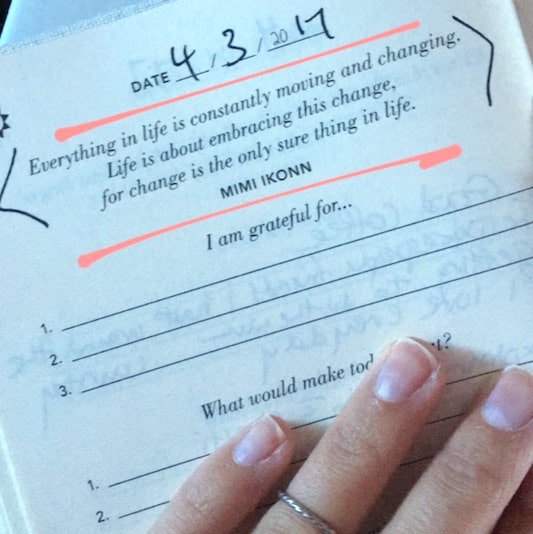 DATE 4 / 3 / 2017
Everything in life is constantly moving and changing.
Life is about embracing this change,
for change is the only sure thing in life.
MIMI IKONN
I am grateful for...
1.
2.
3.
What would make
1.
2.